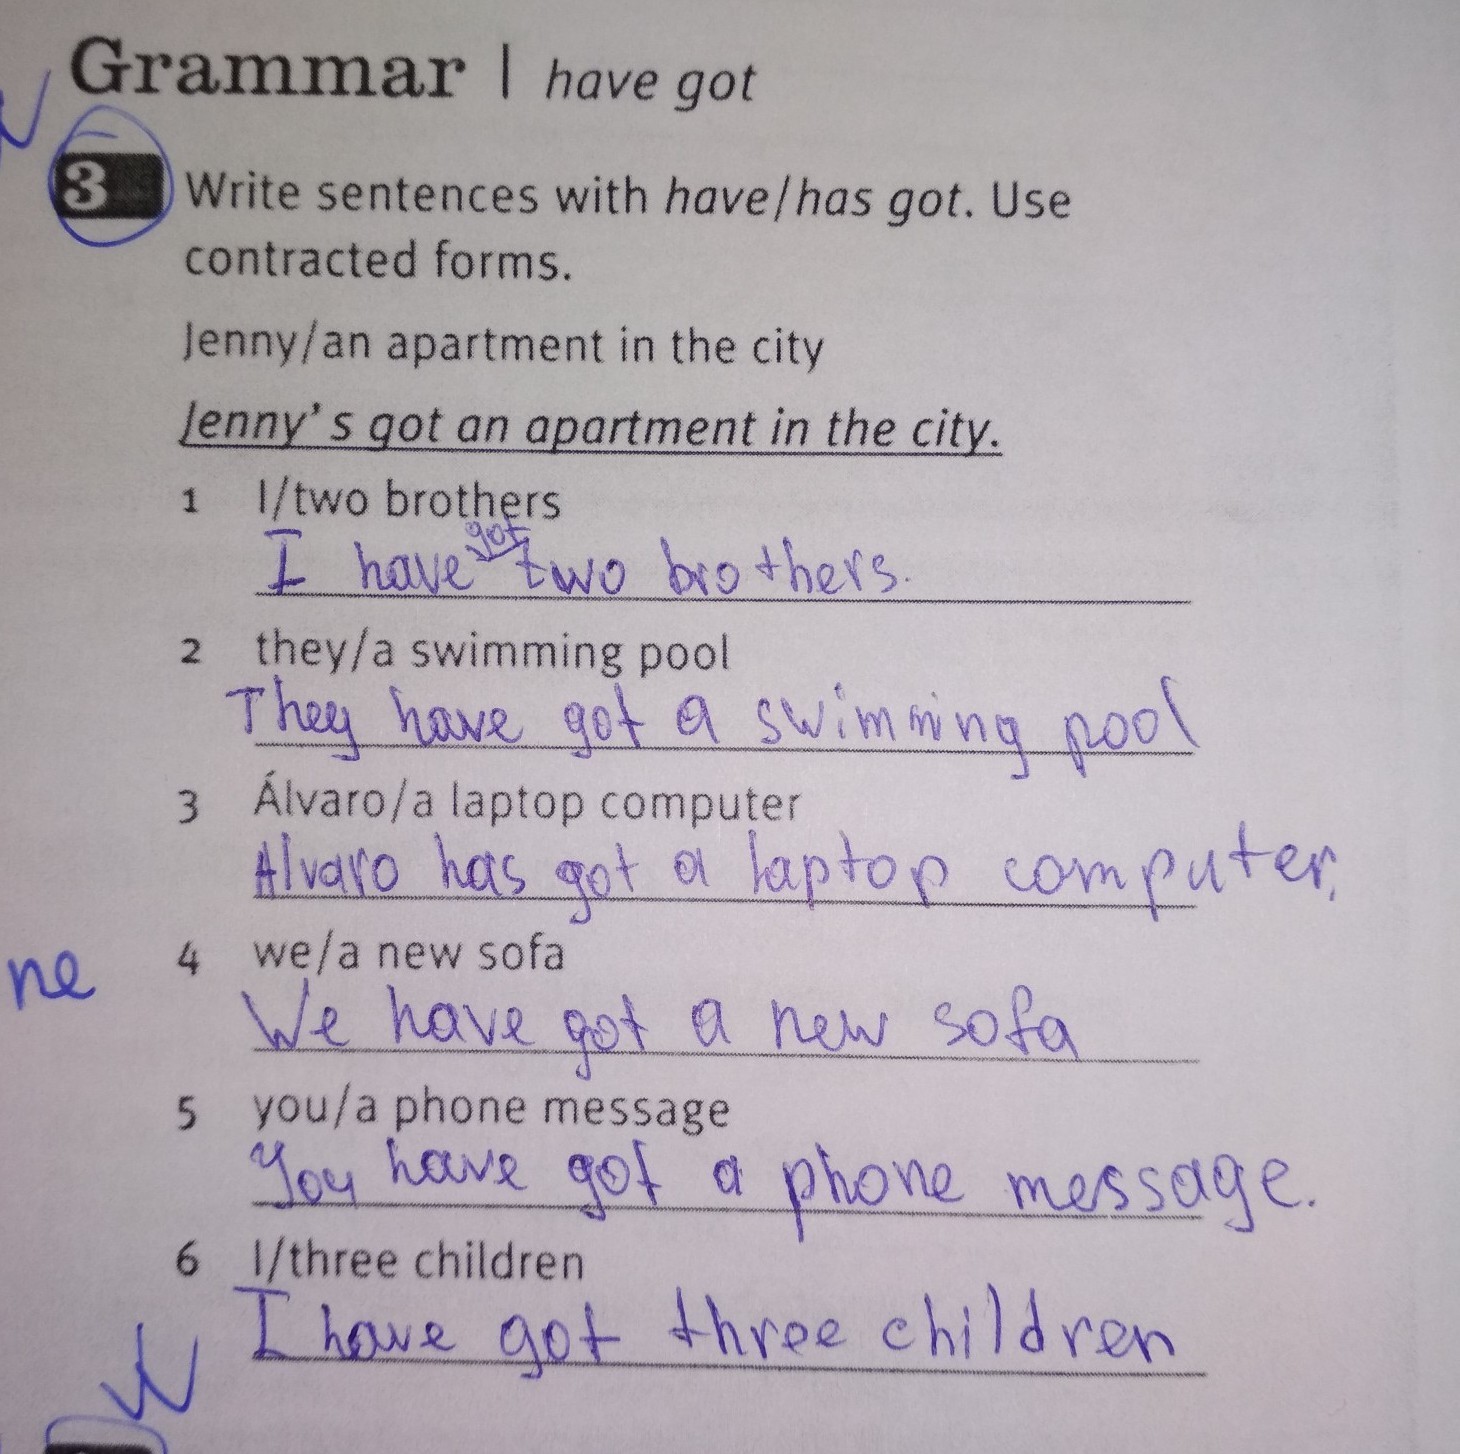 Grammar | have got
3 Write sentences with have/has got. Use
contracted forms.
Jenny/an apartment in the city
Jenny's got an apartment in the city.
1 I/two brothers
got
I have two brothers.
2 they/a swimming pool
They have got a swimming pool
3 Álvaro/a laptop computer
Alvaro has got a laptop computer.
ne
4 we/a new sofa
We have got a new sofa
5 you/a phone message
You have got a phone message.
6 I/three children
I have got three children